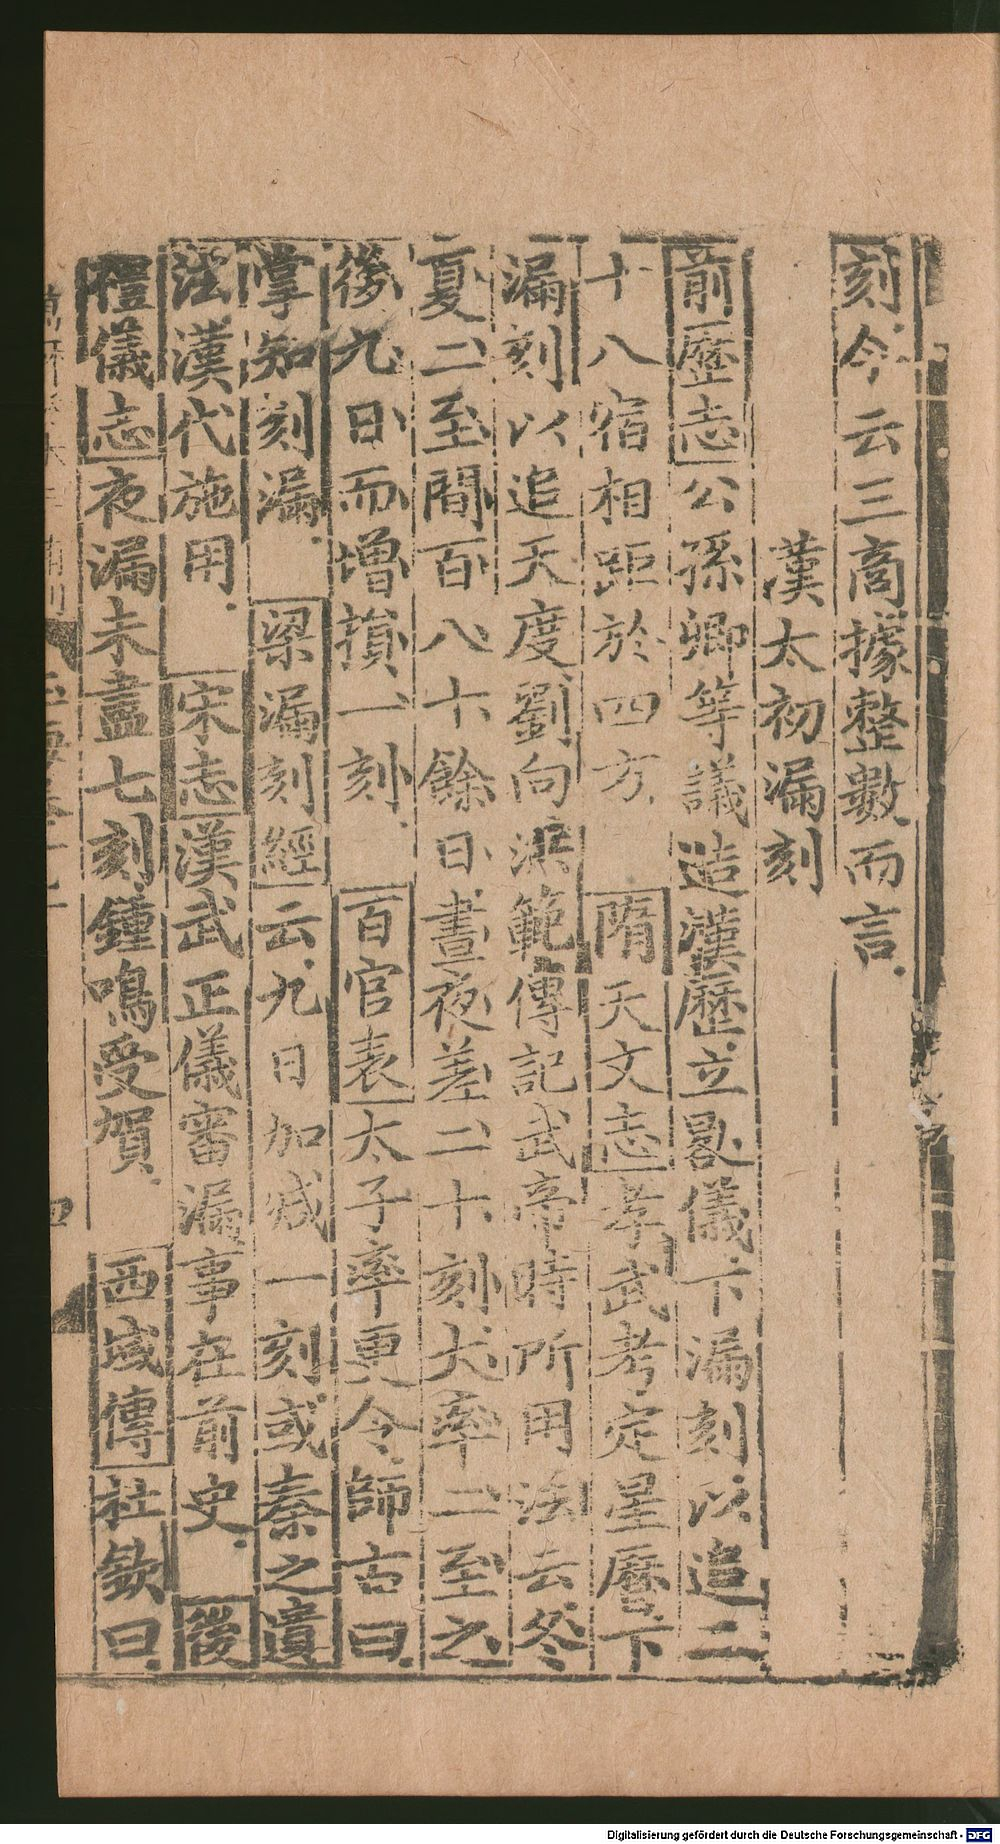 刻今云三商據整數而言
漢太初漏刻
前歷志公孫卿等議造漢歷立晷儀下漏刻以追二
十八宿相距於四方隋天文志孝武考定星曆下
漏刻以追天度劉向洪範傳記武帝時所用法去冬
夏二至間百八十餘日晝夜差二十刻大率二至之
後九日而增損一刻百官表太子率更令師古曰
掌知刻漏梁漏刻經云九日加減一刻或秦之遺
法漢代施用宋志漢武正儀審漏事在前史後
禮儀志夜漏未盡七刻鍾鳴受賀西域傳杜欽曰
四
Digitalisierung gefördert durch die Deutsche Forschungsgemeinschaft - DFG